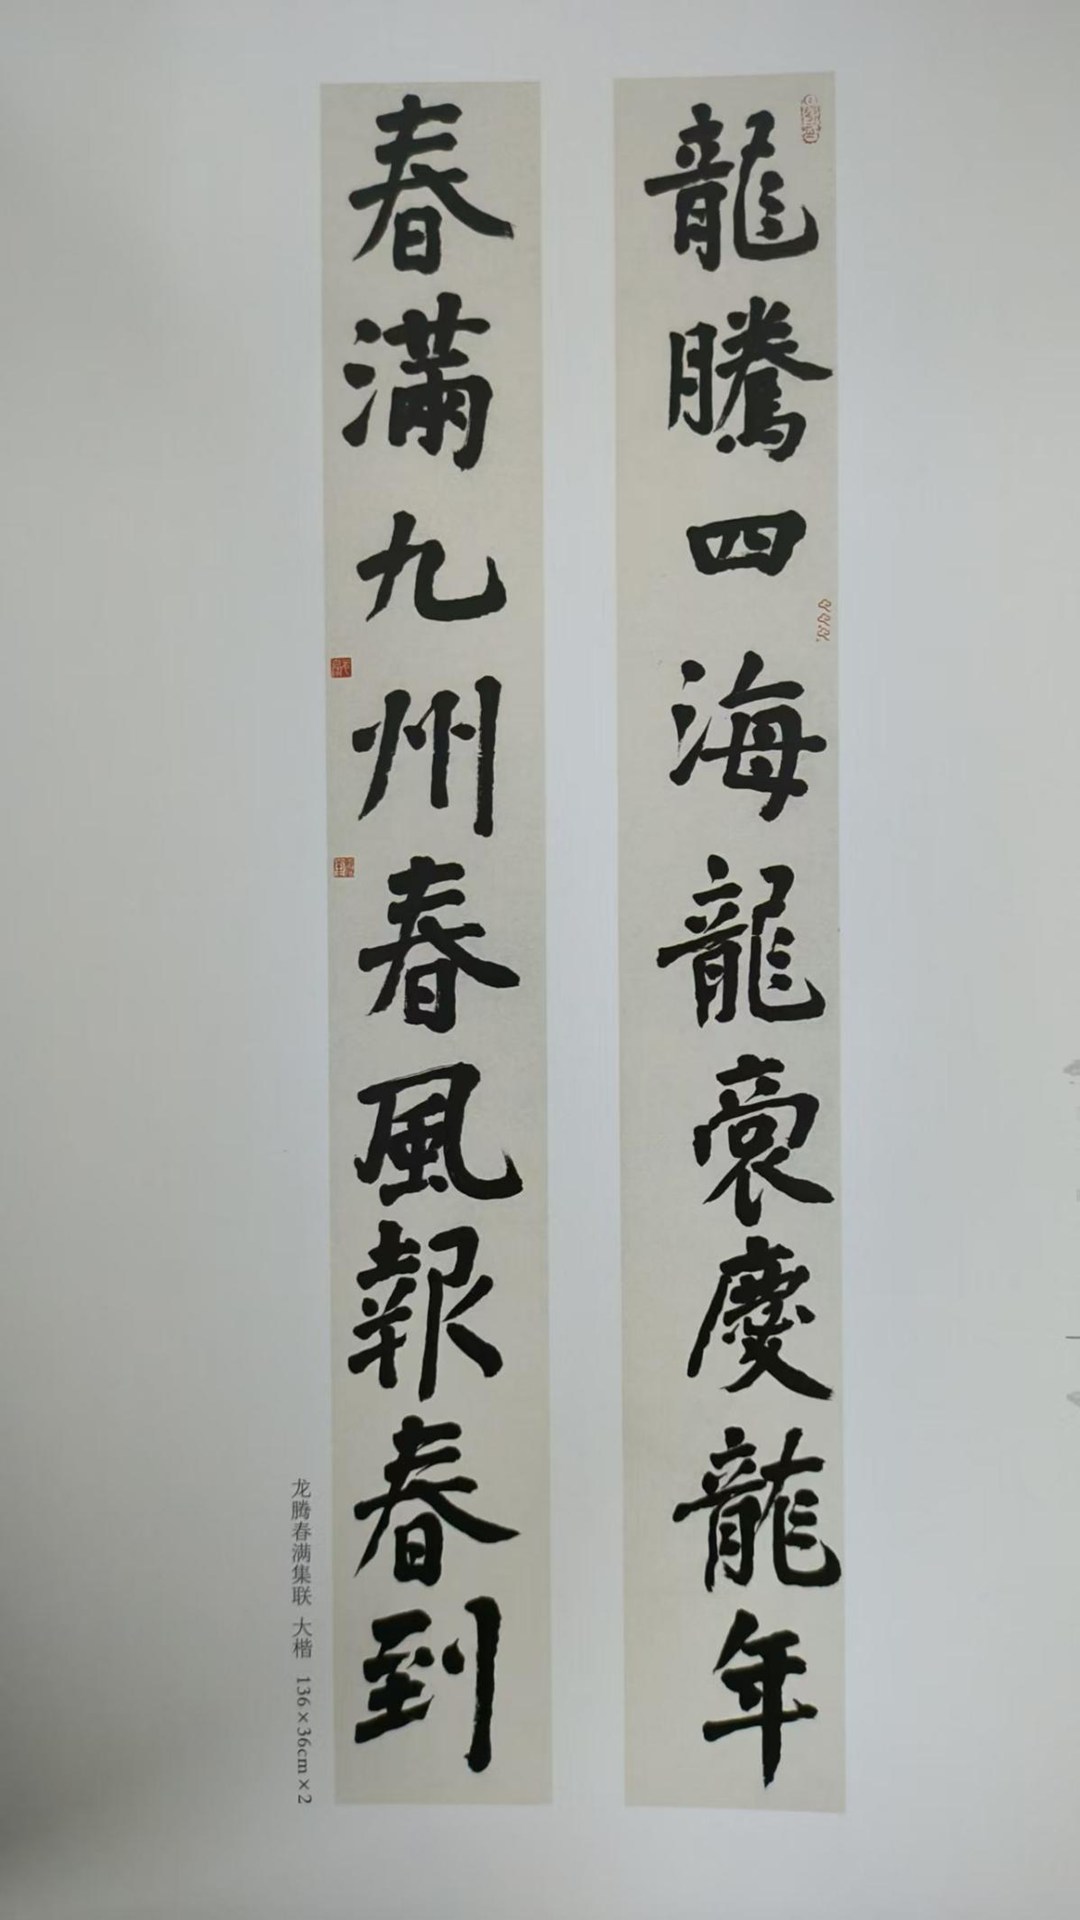 龍騰四海龍裔慶龍年
春滿九州春風報春到
龙腾春满集联 大楷 136×36cm×2